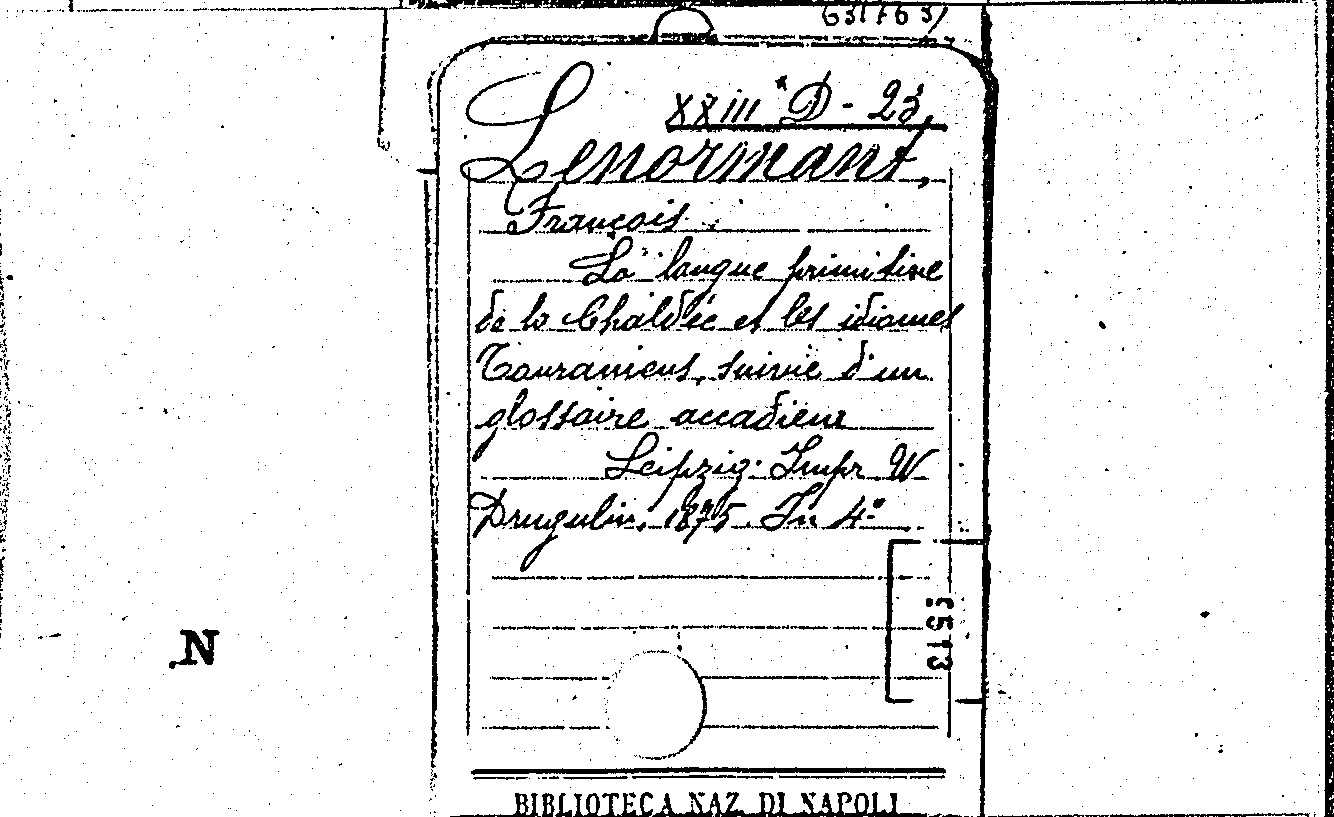 XXIII * D - 23
Lenormant,
François
La langue primitive
de la Chaldée et les idiomes
Touraniens, suivie d'un
glossaire accadien
Leipzig. Impr W
Drugulin, 1875. In 4º
5513
N
BIBLIOTECA NAZ. DI NAPOLI